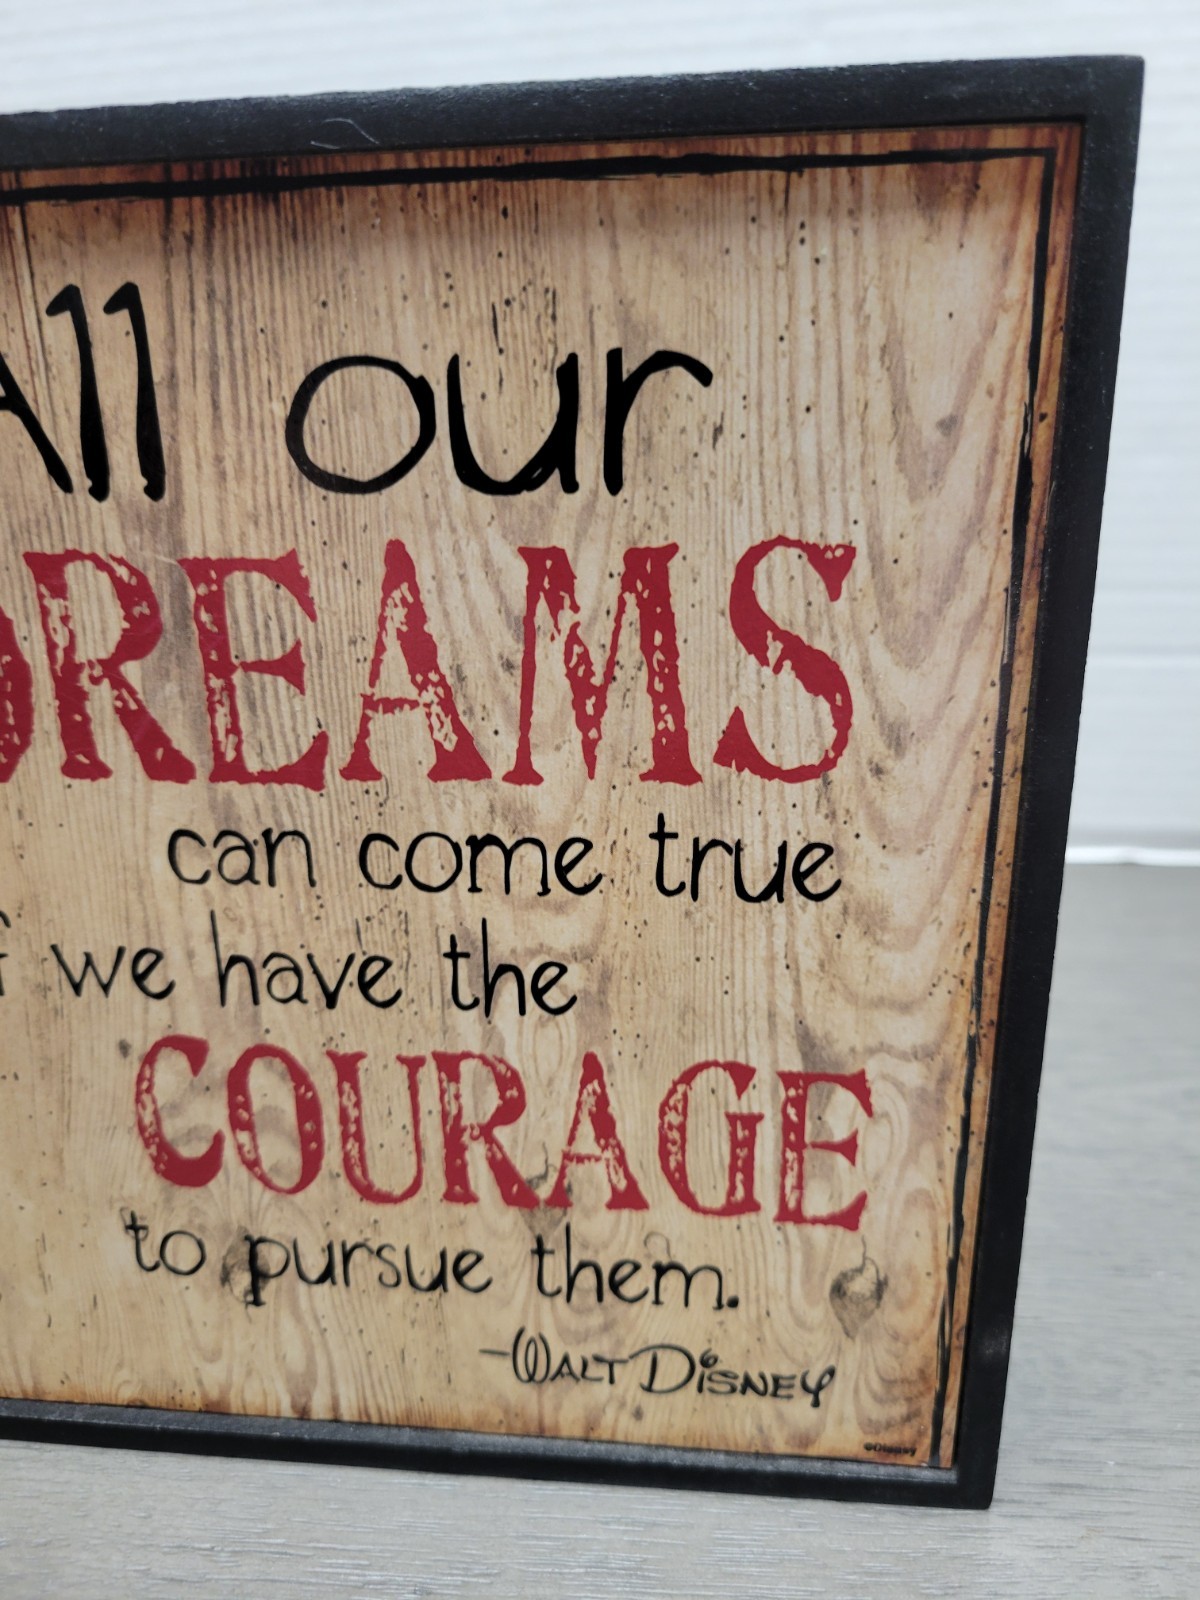 All our
DREAMS
can come true
if we have the
COURAGE
to pursue them.
-WALT DISNEY
©Disney